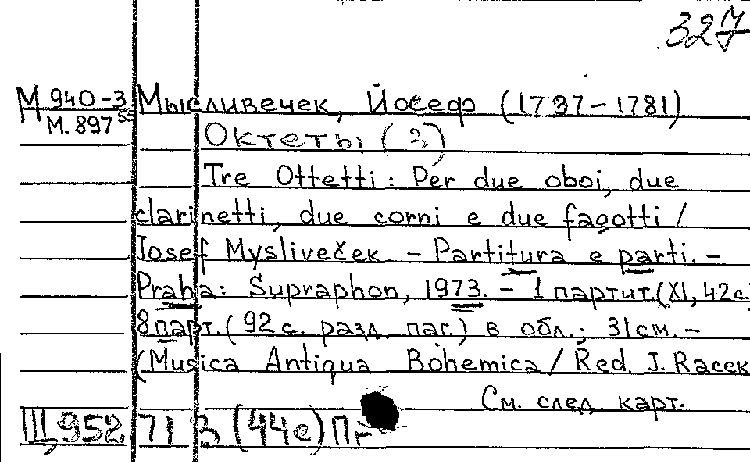 327
М 940-3 Мысливечек, Йосеф (1737-1781)
М. 897
Октеты (3)
Tre Ottetti: Per due oboi, due
clarinetti, due corni e due fagotti /
Josef Mysliveček. - Partitura e parti. -
Praha: Supraphon, 1973. - 1 партит.(XI, 42с
8парт.(92с. разд. паг.) в обл.; 31см. -
(Musica Antiqua Bohemica / Red. J. Racek
См. след. карт.
Ш,952 71 3 (44е) Пг